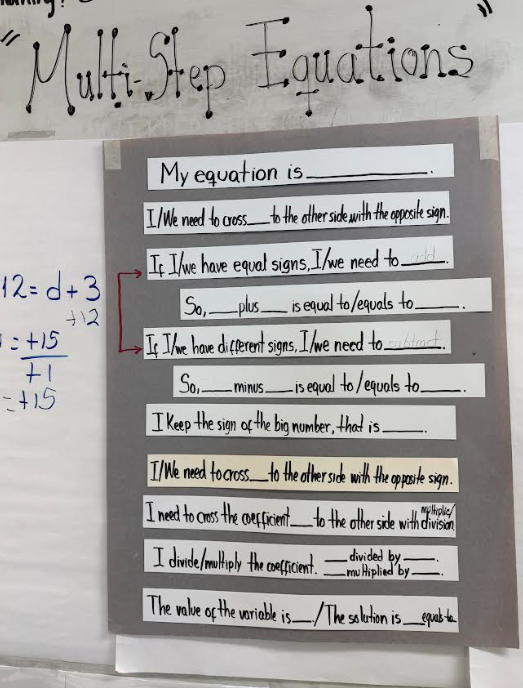 "Multi-Step Equations"
My equation is ________.
I/We need to cross___to the other side with the opposite sign.
If I/we have equal signs, I/we need to add.
So,___plus___is equal to/equals to____.
If I/we have different signs, I/we need to subtract.
So,___minus___is equal to/equals to____.
I Keep the sign of the big number, that is____.
I/We need to cross___to the other side with the opposite sign.
I need to cross the coefficient___to the other side with multiplic/division
I divide/multiply the coefficient. ___divided by___.
___multiplied by___.
The value of the variable is___/The solution is___equals to
12 = d + 3
+12
= +15
+1
= +15